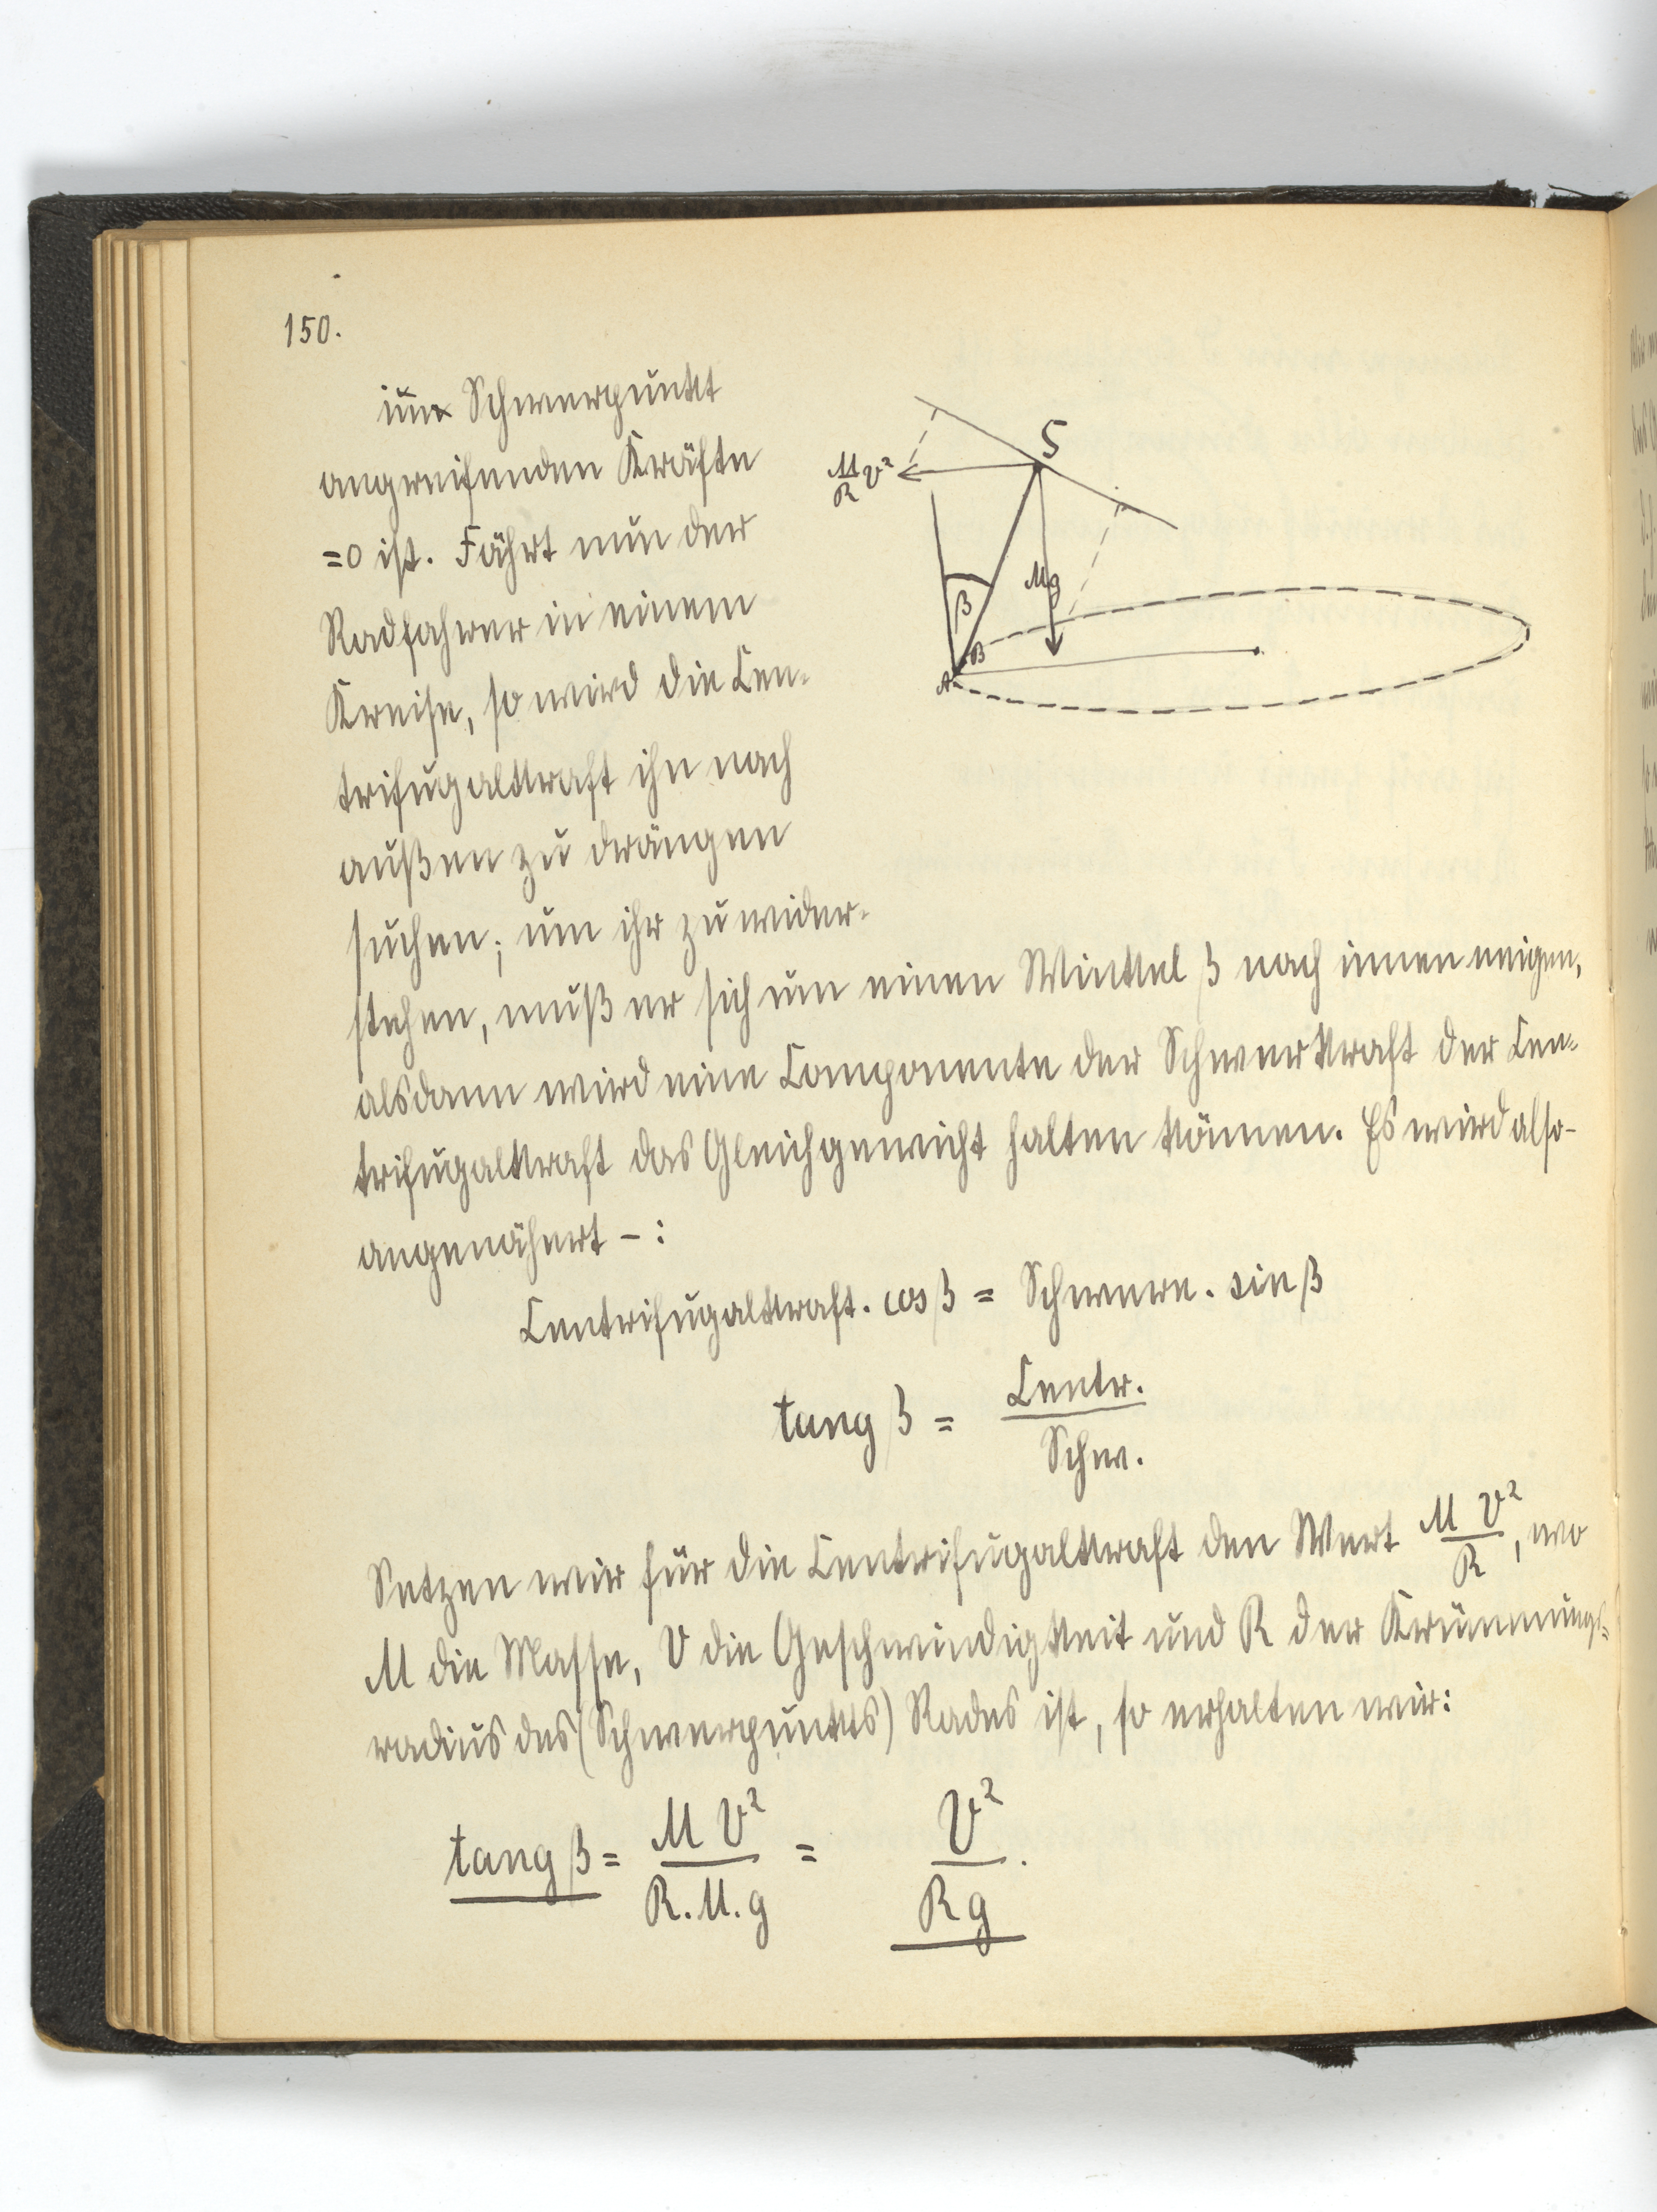 150.
im Schwerpunkt
angreifenden Kräfte
=0 ist. Fährt nun der
Radfahrer in einem
Kreise, so wird die Cen-
trifugalkraft ihn nach
außen zu drängen
suchen; um ihr zu wider-
stehen, muß er sich um einen Winkel β nach innen neigen,
alsdann wird eine Componente der Schwerkraft der Cen-
trifugalkraft das Gleichgewicht halten können. Es wird also-
angenähert - :
Centrifugalkraft. cos β = Schwere. sin β
tang β = Centr. / Schw.
Setzen wir für die Centrifugalkraft den Wert M V² / R, wo
M die Masse, V die Geschwindigkeit und R der Krümmungs-
radius des (Schwerpunkts) Rades ist, so erhalten wir:
tang β = M V² / R. M. g = V² / R g.
S
M/R V²
Mg
β
B
A